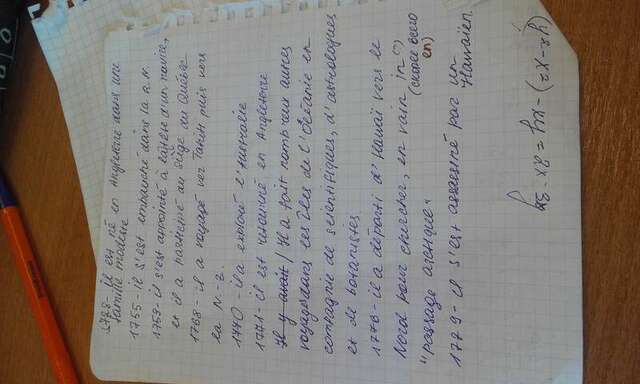 1728 - il est né en Angleterre dans une
famille modeste
1755 - il s'est embauché dans la R.N.
1759 - il s'est appointé à la tête d'un navire,
et il a participé au siège du Québec
1768 - il a voyagé ver Tahiti puis vers
la N.-Z.
1770 - il a exploré l'Australie
1771 - il est retourné en Angleterre
Il y avait / Il a fait nombreux autres
voyages dans les îles de l'Océanie en
compagnie de scientifiques, d'astrologues
et de botanistes
1778 - il a départi d'Hawaï vers le
Nord pour chercher, en vain in(?)
(скорее всего
en)
"passage arctique"
1779 - il s'est assassiné par un
Hawaïen.